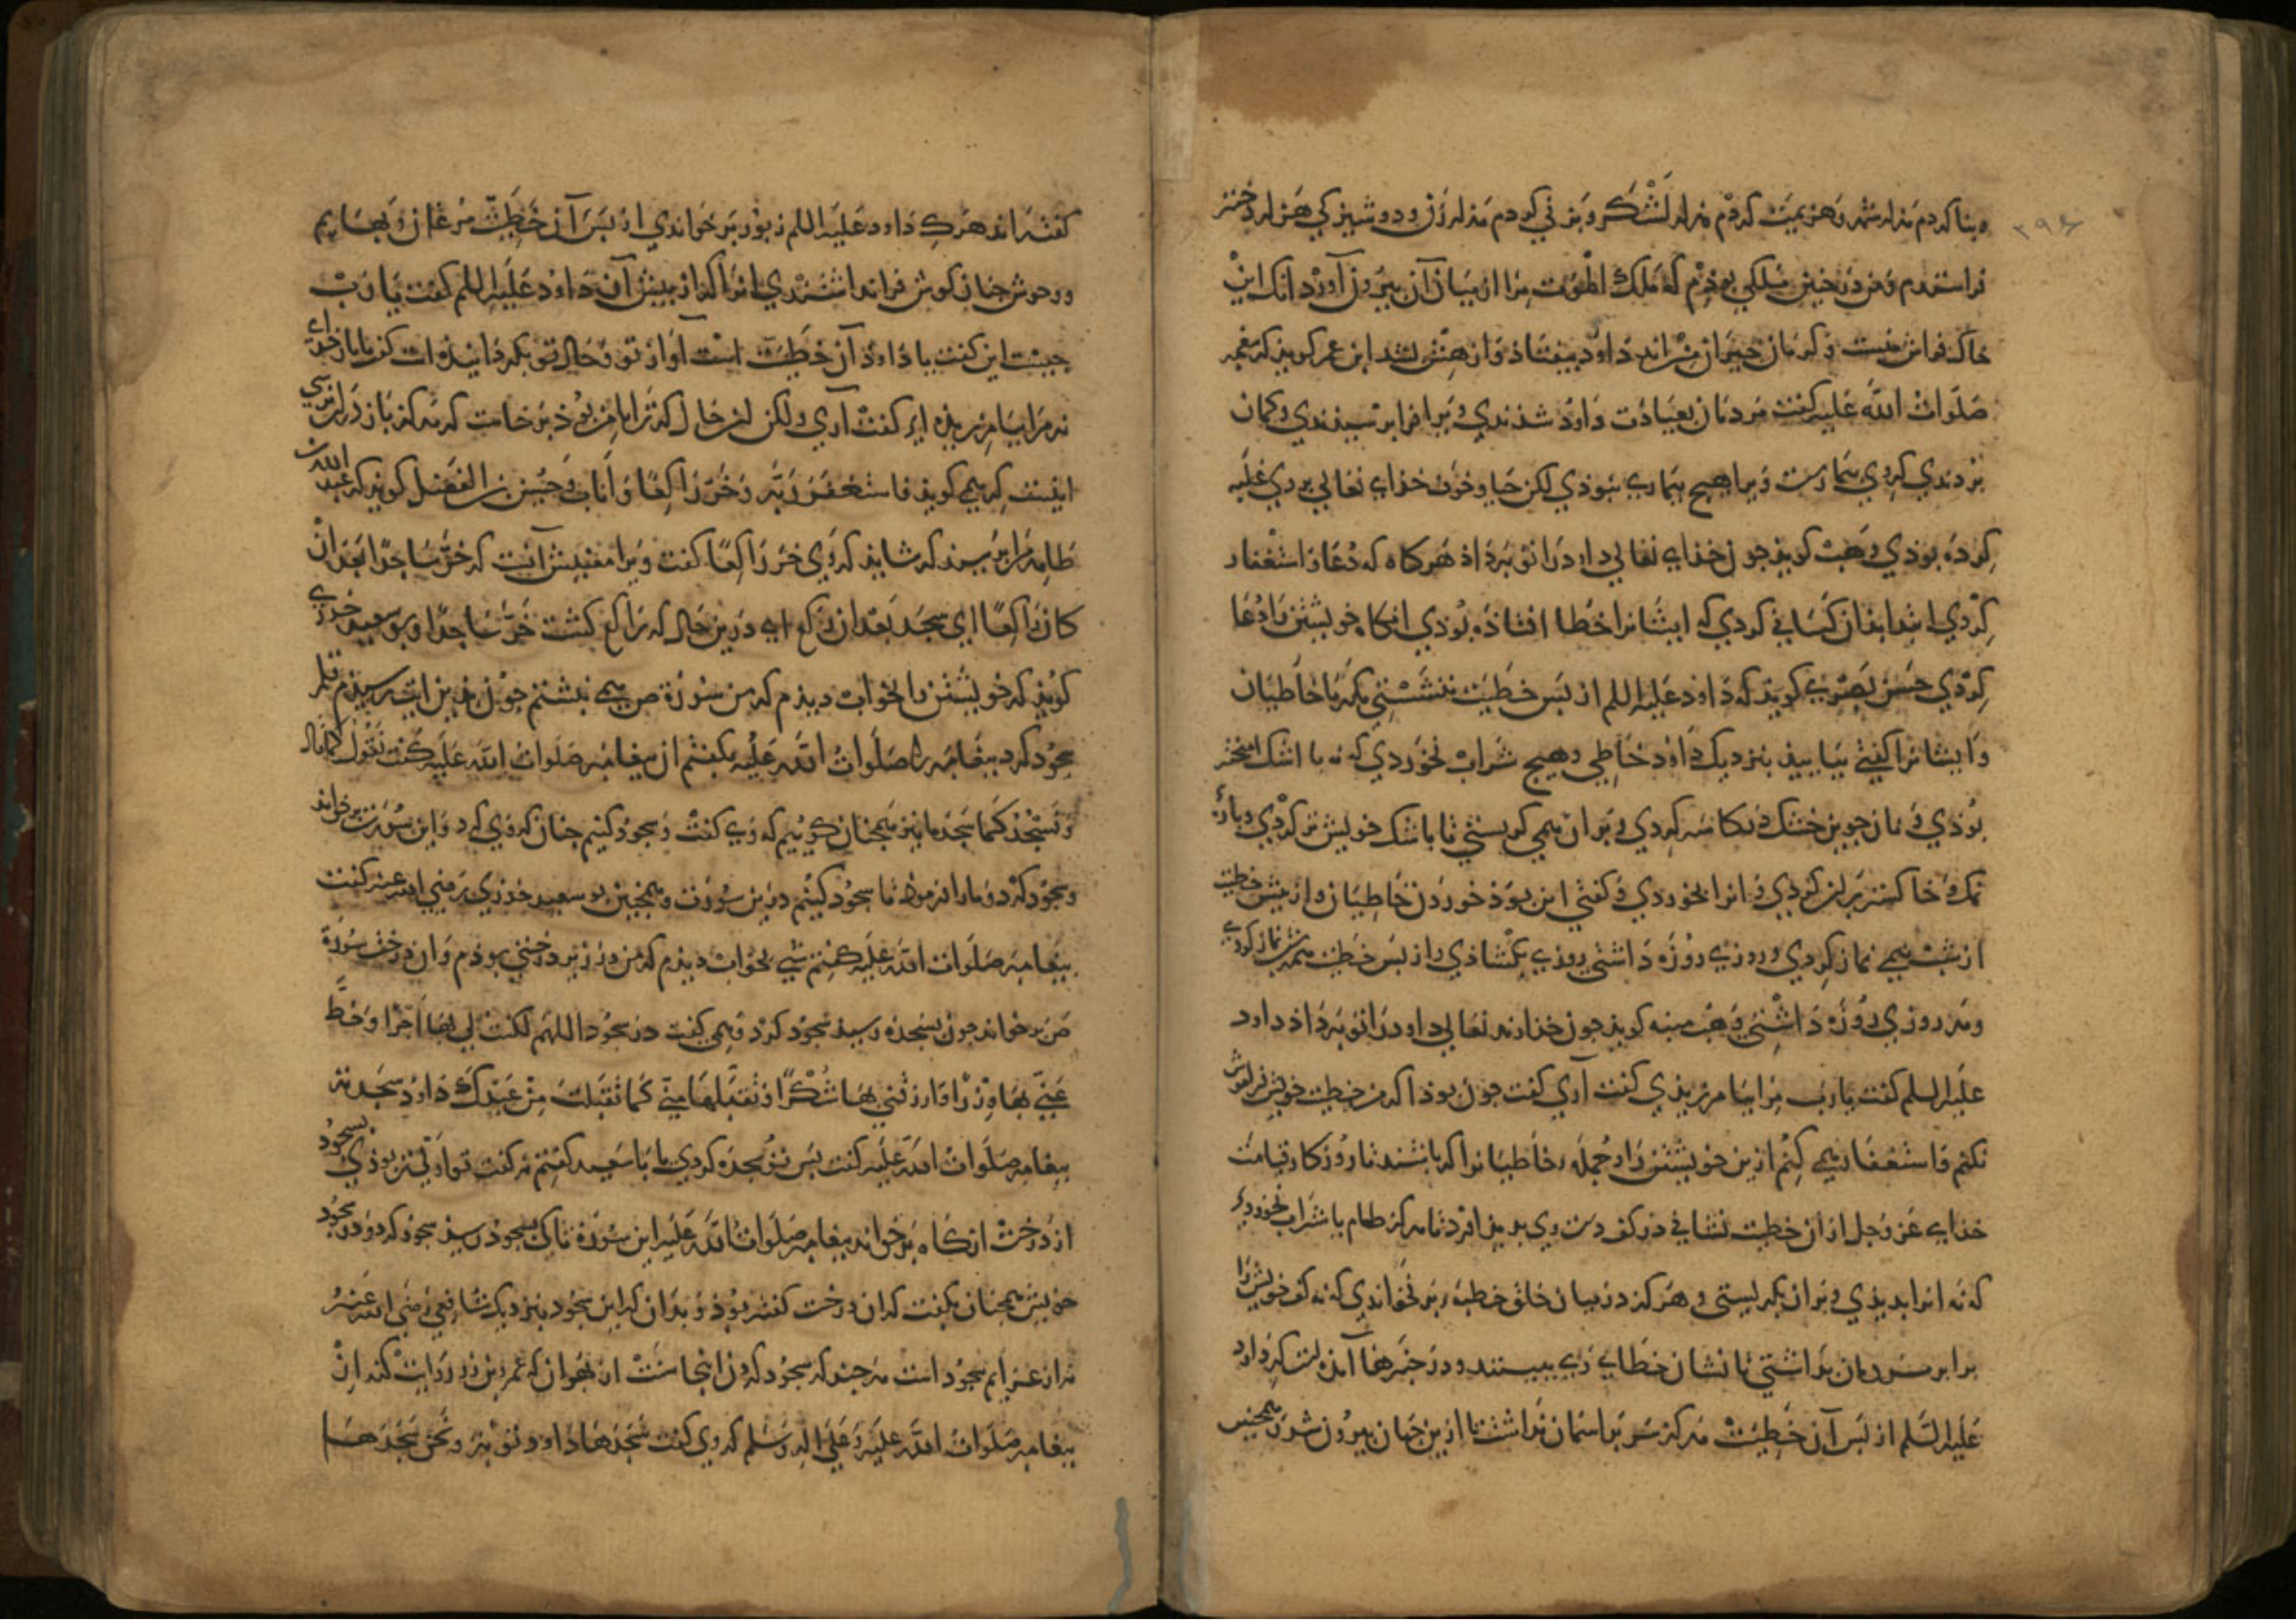 بنا کردم هزار شهر و هزیمت کردم هزار لشکر و بزنی کردم هزار زن و دوشیزگی هزار دختر
فراستدم و من در چنین ملکی بوذم که ملک الموت مرا از میان آن بیرون آورد انک این
خاک فراش منست و کرمان جیران من اند داود بیفتاد و از هش بشد ابن عمر کویذ که پیغمبر
صلوات الله علیه کفت مردمان بعیادت داود شدندی و ویرا فرا پرسیدندی و کمان
بردندی که وی بیمارست و ویرا هیچ بیماری نبوذی لکن حیا و خوف خدای تعالی بر وی غلبه
کرده بوذی وهب کویذ چون خدای تعالی داود را توبه داذ هرکاه که دعا و استغفار
کردی ابتدا بذان کسانی کردی که ایشانرا خطا افتاذه بوذی انکاه خویشتن را دعا
کردی حسن بصری کویذ که داود علیه السلم از پس خطیت ننشستی مکر با خاطیان
و ایشانرا کفتی بیاییذ بنزدیک داود خاطی و هیچ شراب نخوردی که نه با اشک امیخته
بوذی و نان جوین خشک در کاسه کردی و بر ان همی کریستی تا باشک خویش تر کردی و پاره
نمک و خاکستر بر ان کردی و انرا بخوردی و کفتی این بوذ خوردن خاطیان و از پیش خطیت
از شب نیمی نماز کردی و روزی روزه داشتی روزی بکشاذی و از پس خطیت همه شب نماز کردی
و همه روزی روزه داشتی وهب منبه کویذ چون خداوند تعالی داود را توبه داذ داود
علیه السلم کفت یا رب مرا بیامرزیذی کفت آری کفت چون بوذ اکر من خطیت خویش فراموش
نکنم و استغفار همی کنم ازین خویشتن را و جمله خاطیانرا که باشند تا روزکار قیامت
خدای عز وجل از ان خطیت نشانی در کف دست وی پدید اورد تا هرکز طعام یا شراب نخوردی
که نه انرا بدیذی و بر ان بکریستی و هرکز در میان خلق خطبه بر نخواندی که نه کف خویش را
برابر مردمان بداشتی تا نشان خطای وی ببینند و در خبرها آمذه است که داود
علیه السلم از پس آن خطیت هرکز سر بر اسمان نداشت تا ازین جهان بیرون شد و همچنین
کفته اند هرکه داود علیه السلم زبور بر خواندی از پس آن خطیت مرغان و بهایم
و وحوش چنان کوش فرا نداشتندی انرا که از پیش آن داود علیه السلم کفت یا رب
چیست این کفت یا داود آن خطیت است آواز تو و حال تو بکردانیده است کفت بار خدای
نه مرا بیامرزیذه ای کفت آری ولکن ان حال که ترا با من بوذ برخاست که هرکز باز ان نرسی
اینست که همی کویذ فاستغفر ربه وخر راکعا واناب وحسین بن الفضل کویذ که عبد الله
طاهر مرا بپرسید که شاید که وی خر راکعا کفت ویرا معنیش آنست که خر ساجدا بعد ان
کان راکعا ای سجد بعد ان رکع ای درین حال که راکع کشت خر ساجدا و بو سعید خدری
کویذ که خویشتن را بخواب دیذم که من سورة ص همی نبشتم چون بدین ایت رسیذم قلم
سجود کرد پیغامبر را صلوات الله علیه بکفتم ان پیغامبر صلوات الله علیه کفت نقول کما قال
و نسجد کما سجد ما نیز همچنان کوییم که وی کفت و سجود کنیم چنان که وی کرد و این سورت بر خواند
و سجود کرد و مارا فرمود تا سجود کنیم درین سورت و همچنین بو سعید خدری رضی الله عنه کفت
پیغامبر صلوات الله علیه کفتم شبی بخواب دیذم که من در زیر درختی بوذم و ان درخت سورة
ص بر خواند چون بسجده رسید سجود کرد و همی کفت در سجود اللهم اکتب لی بها اجرا وحط
عنی بها وزرا وارزقنی بها شکرا وتقبلها منی کما تقبلت من عبدک داود سجدته
پیغامبر صلوات الله علیه کفت پس تو سجده کردی یا با سعید کفتم نه کفت تو اولیتر بوذی بسجود
از درخت انکاه بر خواند پیغامبر صلوات الله علیه این سورة تا بسجود رسیذ سجود کرد و در سجود
خویش همچنان بکفت که ان درخت کفته بوذ و بدان که این سجود بنزدیک شافعی رضی الله عنه
نه از عزایم سجود است هر چند که سجود کردن اینجا سنت
پیغامبر صلوات الله علیه وعلی اله وسلم که وی کفت سجدها داود توبة ونحن نسجدها